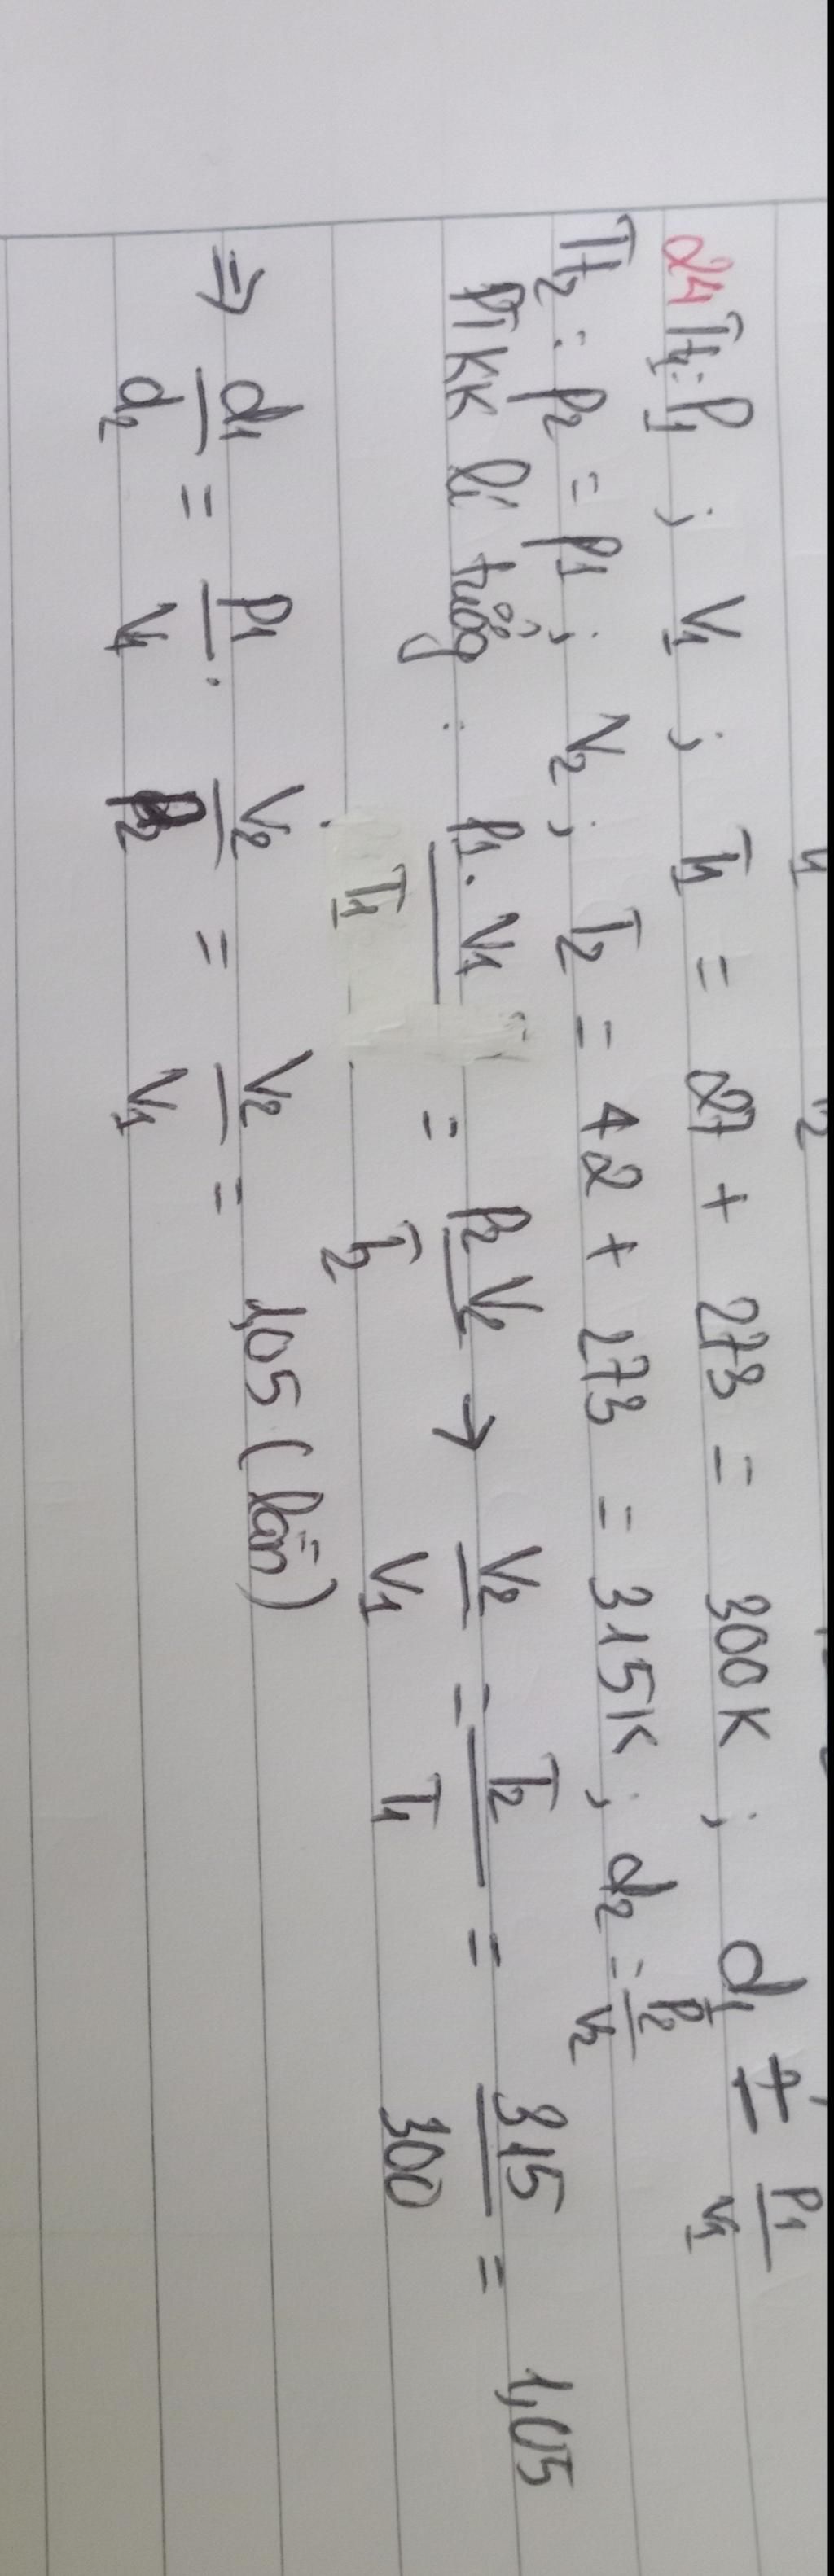 24 Tt1: P1 ; V1 ; T1 = 27 + 273 = 300K ; d1 = P1/V1
Tt2: P2 = P1 ; V2 ; T2 = 42 + 273 = 315K ; d2 = P2/V2
PT KK lí tưởg : P1.V1/T1 = P2V2/T2 → V2/V1 = T2/T1 = 315/300 = 1,05
⇒ d1/d2 = P1/V1 . V2/P2 = V2/V1 = 1,05 (lần)